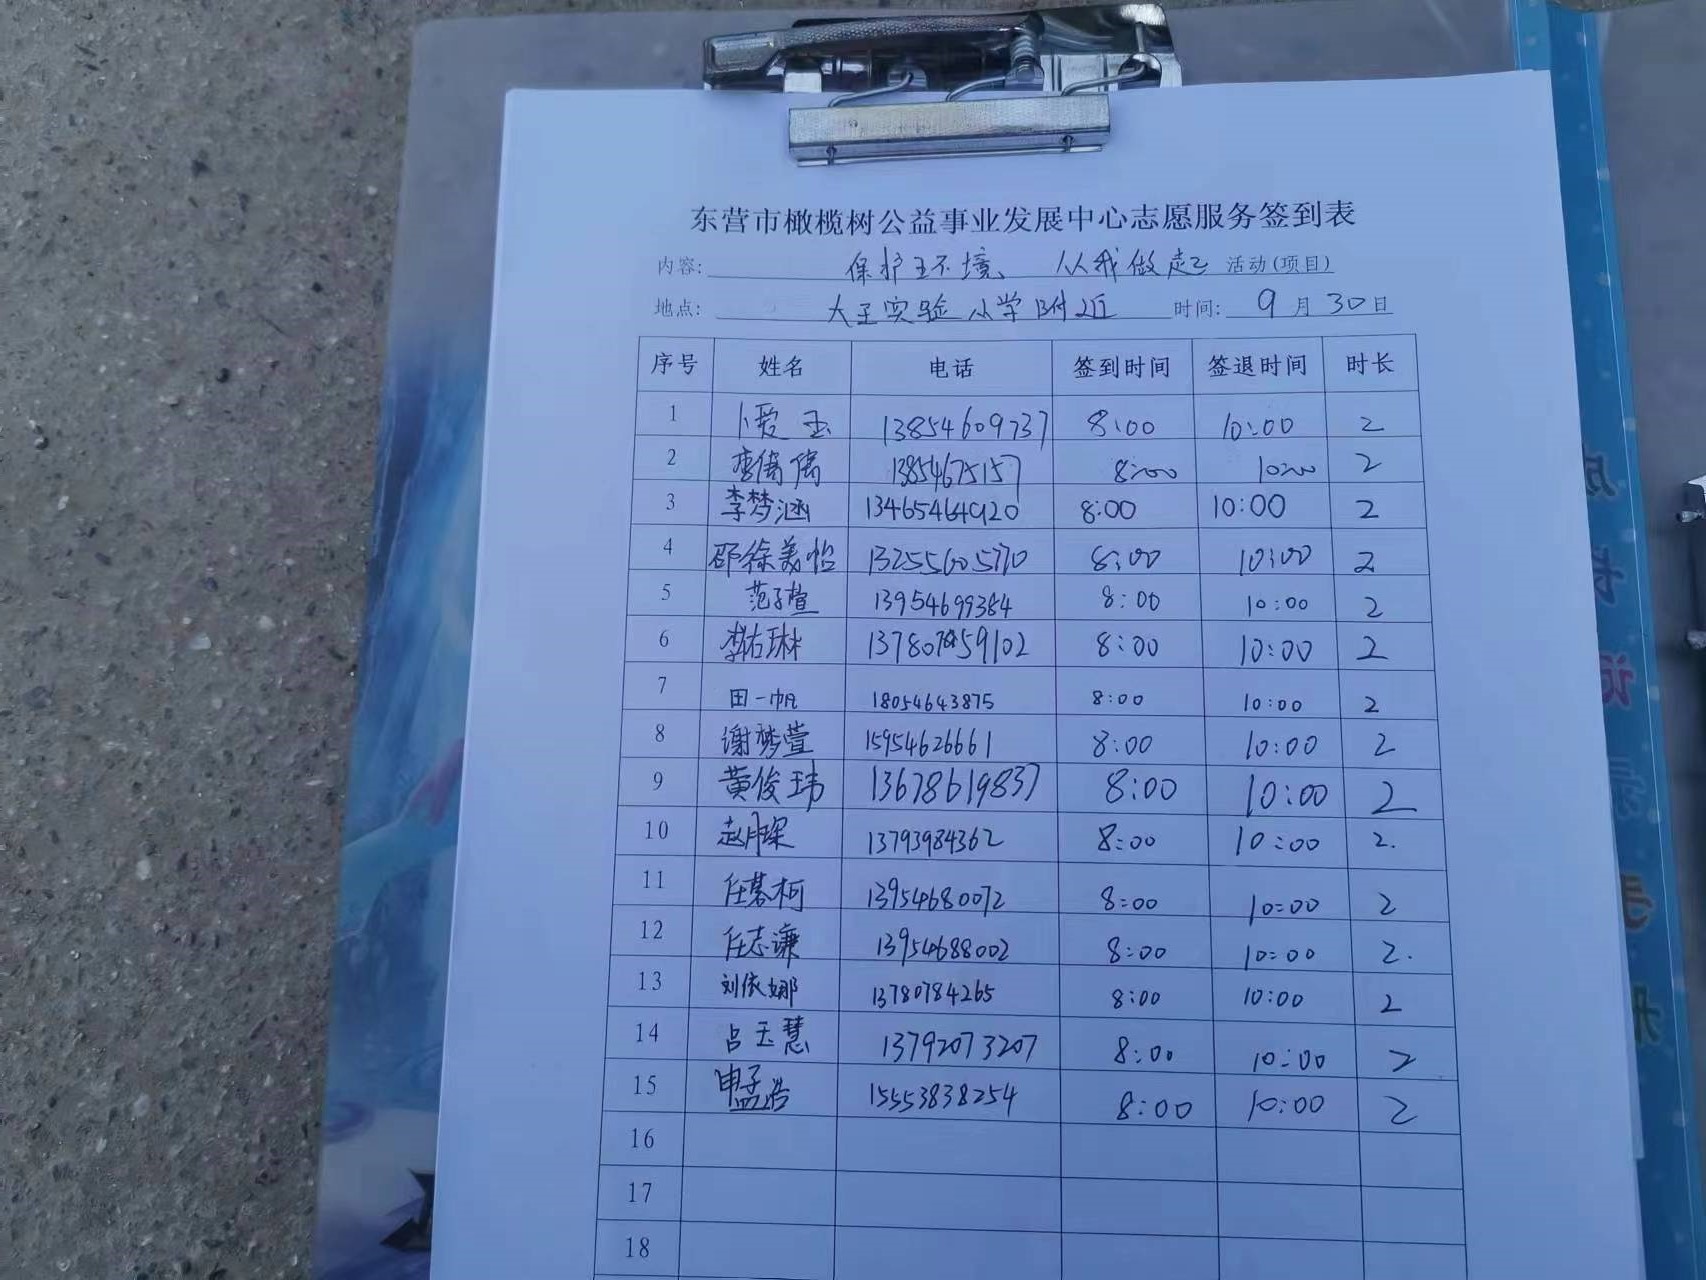 东营市橄榄树公益事业发展中心志愿服务签到表
内容: 保护环境、从我做起 活动(项目)
地点: 大王实验小学附近 时间: 9月30日
序号 姓名 电话 签到时间 签退时间 时长
1 卜爱玉 13854609737 8:00 10:00 2
2 李儒儒 13854675157 8:00 10:00 2
3 李梦涵 13465464920 8:00 10:00 2
4 邵徐美怡 13255605770 8:00 10:00 2
5 范子萱 13954699384 8:00 10:00 2
6 李右琳 8:00 10:00 2
7 田一帆 18054643875 8:00 10:00 2
8 谢梦萱 15954626661 8:00 10:00 2
9 黄俊玮 13678619837 8:00 10:00 2
10 赵月琛 13793984362 8:00 10:00 2.
11 任慕柯 13954680072 8:00 10:00 2
12 任志谦 13954688002 8:00 10:00 2.
13 刘依娜 13780784265 8:00 10:00 2
14 吕玉慧 13792073207 8:00 10:00 2
15 申孟浩 15553838254 8:00 10:00 2
16
17
18
成
长
记
录
手
册